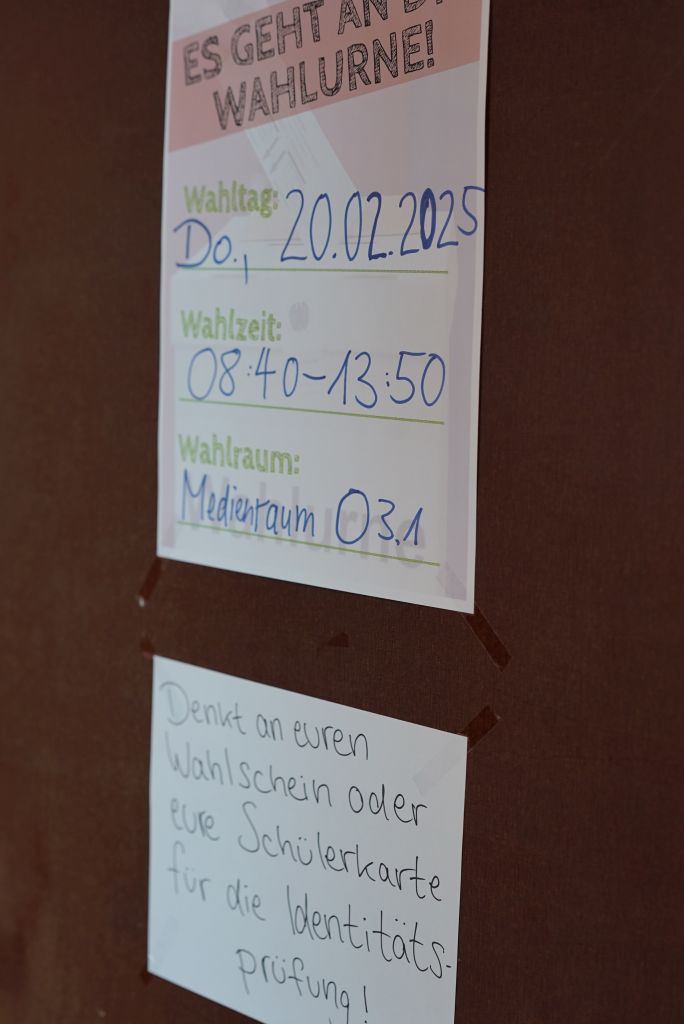 ES GEHT AN D
WAHLURNE!
Wahltag:
Do., 20.02.2025
Wahlzeit:
08:40-13:50
Wahlraum:
Medienraum 03.1
Wahlurne
Denkt an euren
Wahlschein oder
eure Schülerkarte
für die Identitäts-
prüfung!